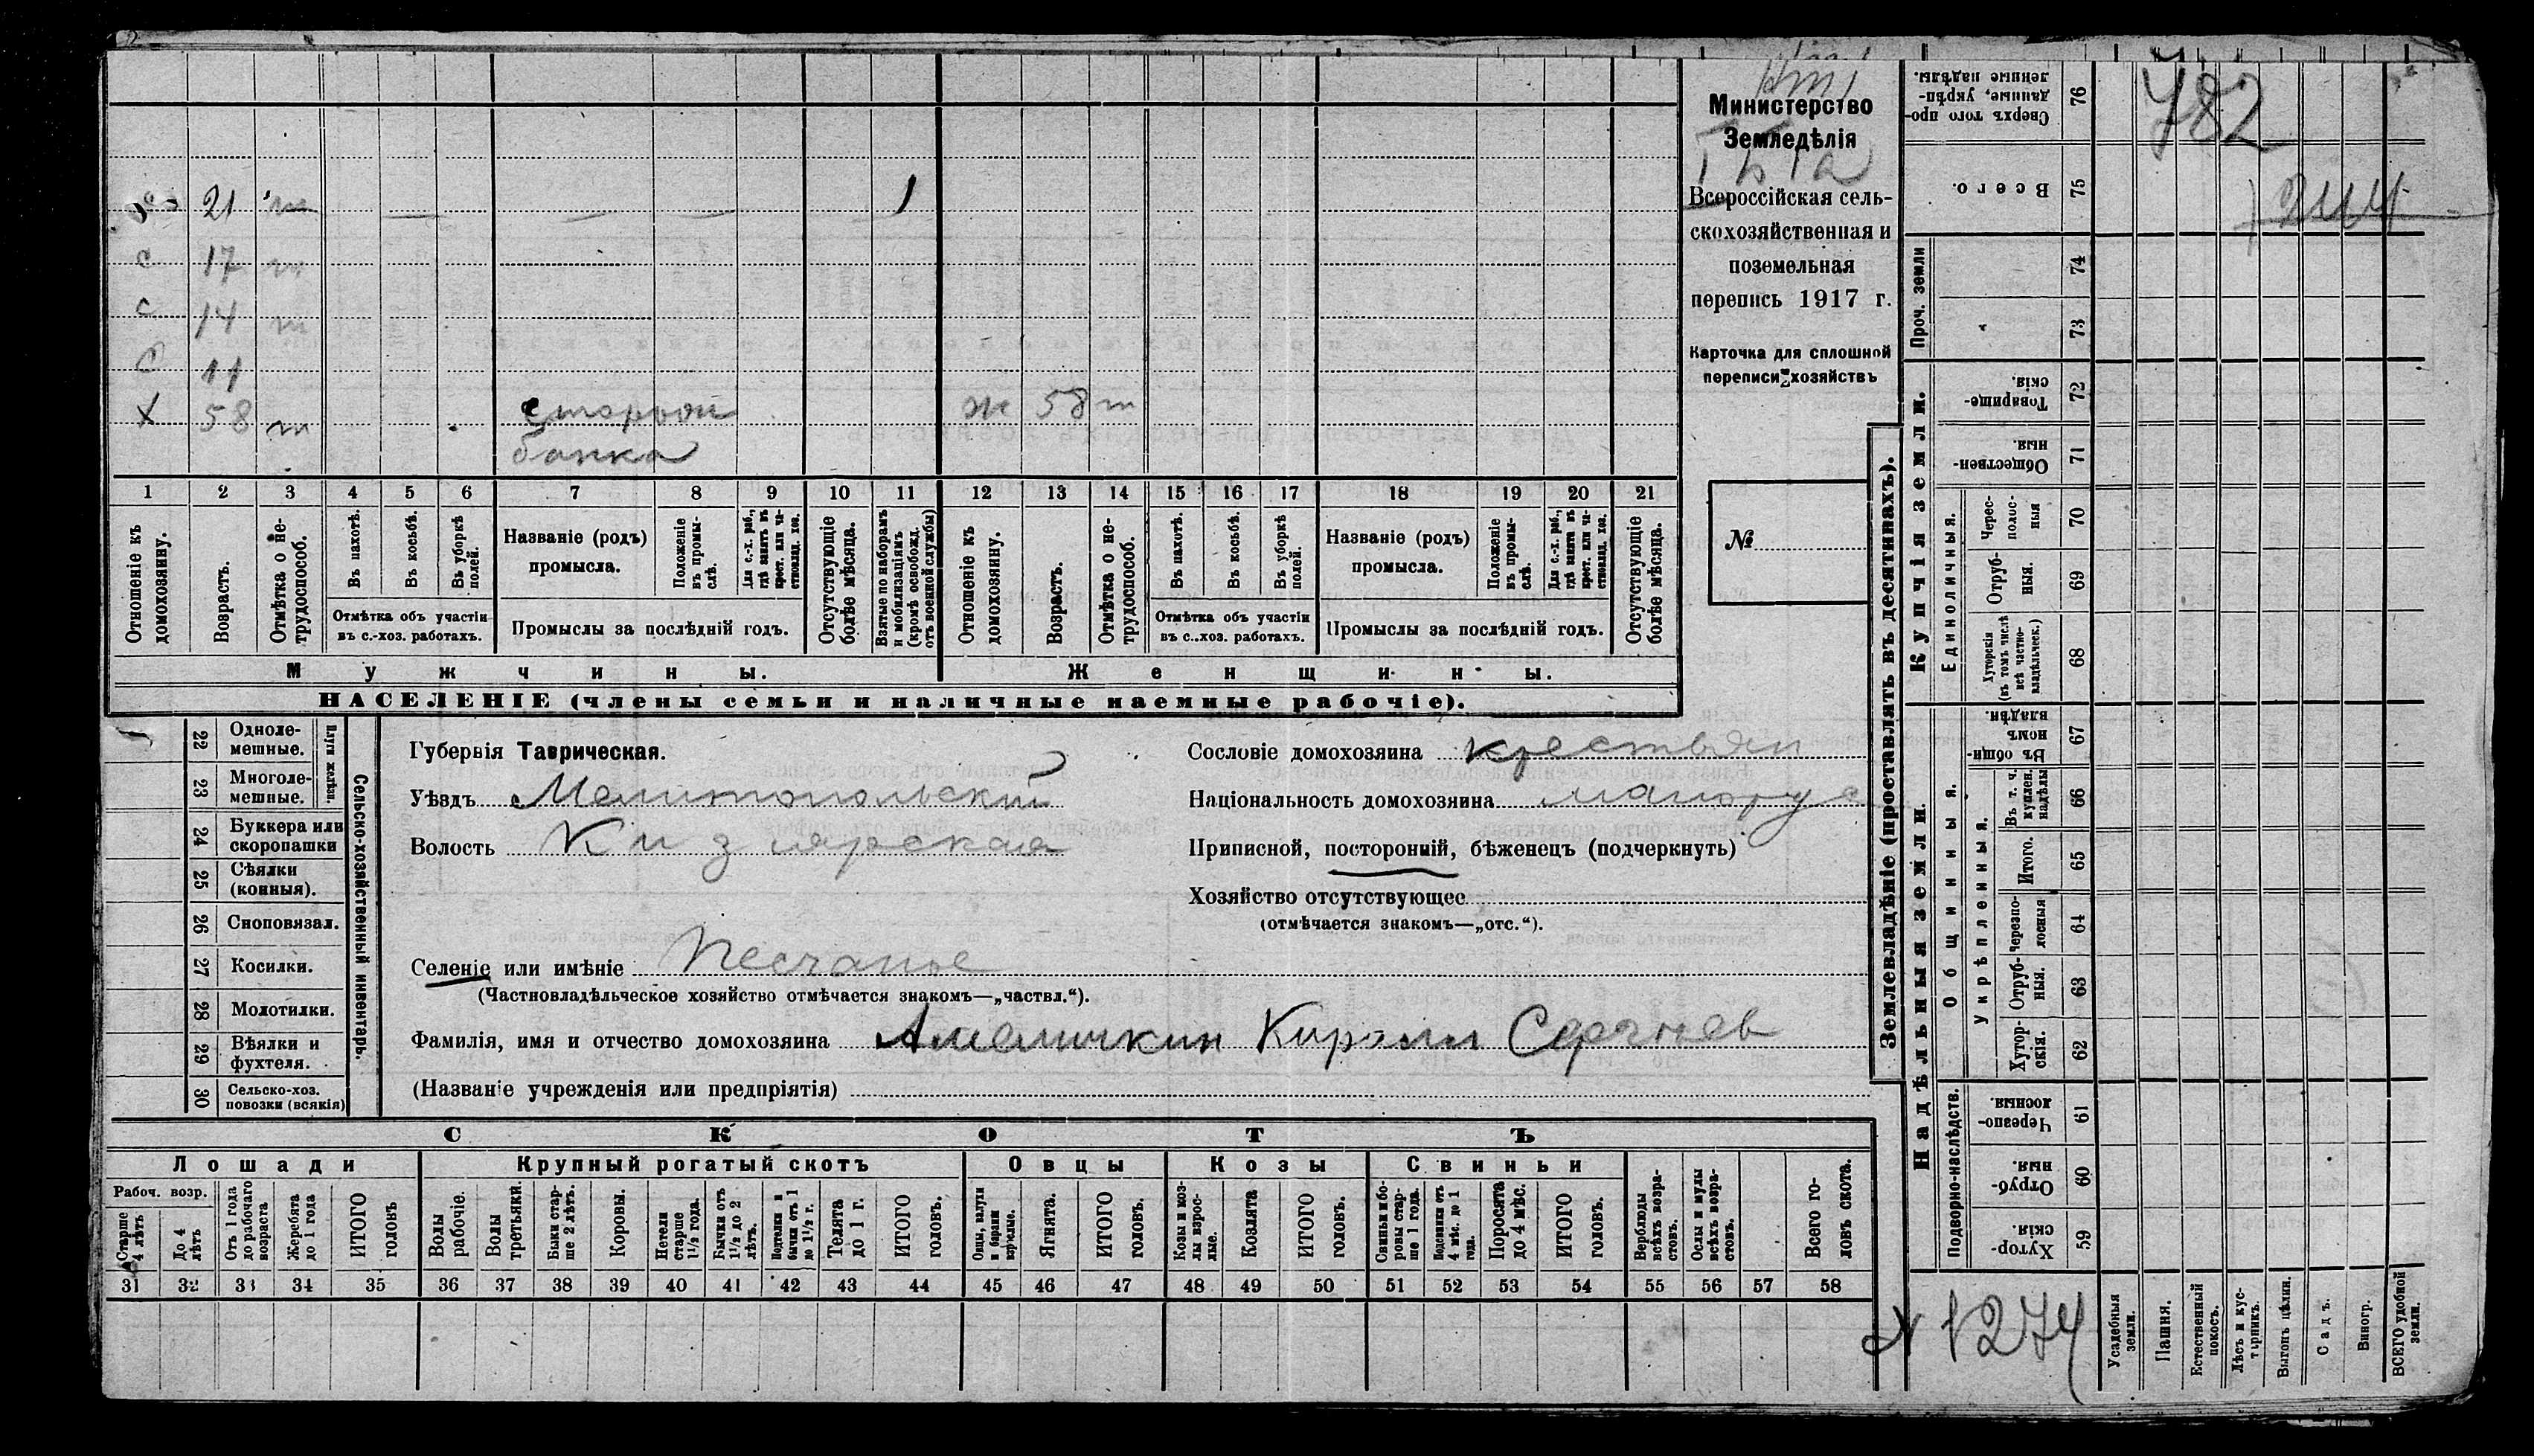 782
2114
Министерство
Земледѣлія
Всероссійская сель-
скохозяйственная и
поземельная
перепись 1917 г.
Карточка для сплошной
переписи хозяйствъ
№
21 m 1
с 17 m
с 14 m
с 11
х 58 m сторож ж 58 m
банка
1 2 3 4 5 6 7 8 9 10 11 12 13 14 15 16 17 18 19 20 21
Отношеніе къ домохозяину.
Возрастъ.
Отмѣтка о не-трудоспособ.
Въ пахотѣ.
Въ косьбѣ.
Въ уборкѣ полей.
Отмѣтка объ участіи
въ с.-хоз. работахъ.
Названіе (родъ)
промысла.
Положеніе въ промы-слѣ.
Для с.-х. раб., гдѣ занятъ въ крест. или ча-стновлад. хоз.
Промыслы за послѣдній годъ.
Отсутствующіе болѣе мѣсяца.
Взятые по наборамъ и мобилизаціямъ (кромѣ освобожд. отъ военной службы)
Отношеніе къ домохозяину.
Возрастъ.
Отмѣтка о не-трудоспособ.
Въ пахотѣ.
Въ косьбѣ.
Въ уборкѣ полей.
Отмѣтка объ участіи
въ с.-хоз. работахъ.
Названіе (родъ)
промысла.
Положеніе въ промы-слѣ.
Для с.-х. раб., гдѣ занята въ крест. или ча-стновлад. хоз.
Промыслы за послѣдній годъ.
Отсутствующіе болѣе мѣсяца.
Мужчины.
Женщины.
НАСЕЛЕНІЕ (члены семьи и наличные наемные рабочіе).
22 Одноле-мешные.
23 Многоле-мешные.
Плуги желѣзн.
24 Буккера или скоропашки
25 Сѣялки (конныя).
26 Сноповязал.
27 Косилки.
28 Молотилки.
29 Вѣялки и фухтеля.
30 Сельско-хоз. повозки (всякія)
Сельско-хозяйственный инвентарь.
Губернія Таврическая.
Уѣздъ Мелитопольский
Волость Кизиярская
Селеніе или имѣніе Песчаное
(Частновладѣльческое хозяйство отмѣчается знакомъ—„частвл.“).
Фамилія, имя и отчество домохозяина Амеличкин Кирилл Сергиев
(Названіе учрежденія или предпріятія)
Сословіе домохозяина крестьян
Національность домохозяина малорус
Приписной, посторонній, бѣженецъ (подчеркнуть)
Хозяйство отсутствующее
(отмѣчается знакомъ—„отс.“).
СКОТЪ
Лошади
Крупный рогатый скотъ
Овцы
Козы
Свиньи
Рабоч. возр.
Старше 4 лѣтъ
До 4 лѣтъ
Отъ 1 года до рабочаго возраста
Жеребята до 1 года
ИТОГО головъ
Волы рабочіе.
Волы третьяки.
Быки стар-ше 2 лѣтъ.
Коровы.
Нетели старше 1½ года.
Бычки отъ 1½ до 2 лѣтъ.
Подтелки и бычки отъ 1 до 1½ г.
Телята до 1 г.
ИТОГО головъ.
Овцы, валухи и бараны взрослые.
Ягнята.
ИТОГО головъ.
Козы и коз-лы взрос-лые.
Козлята
ИТОГО головъ.
Свиньи и бо-ровы стар-ше 1 года.
Подсвинки отъ 4 мѣс. до 1 года.
Поросята до 4 мѣс.
ИТОГО головъ.
Верблюды всѣхъ возра-стовъ.
Ослы и мулы всѣхъ возра-стовъ.
Всего го-ловъ скота.
31 32 33 34 35 36 37 38 39 40 41 42 43 44 45 46 47 48 49 50 51 52 53 54 55 56 57 58
Землевладѣніе (проставлять въ десятинахъ).
Купчія земли.
Единоличныя.
Надѣльныя земли.
Общинныя.
Укрѣпленныя.
Подворно-наслѣдств.
Проч. земли
Сверхъ того про-данные, укрѣп-ленные надѣлы. 76
Всего. 75
74
73
Товарище-скія. 72
Обществен-ныя. 71
Черес-полос-ныя 70
Отруб-ныя. 69
Хуторскія (въ томъ числѣ всѣ частно-владѣльческ.) 68
Въ общин-номъ владѣн. 67
Въ т. ч. куплен. надѣлы 66
Итого. 65
Черезпо-лосныя 64
Отруб-ныя. 63
Хутор-скія. 62
Черезпо-лосныя. 61
Отруб-ныя. 60
Хутор-скія 59
1274
Усадебныя земли.
Пашня.
Естественный покосъ.
Лѣсъ и кус-тарникъ.
Выгонъ цѣлин.
Садъ.
Виногр.
ВСЕГО удобной земли.